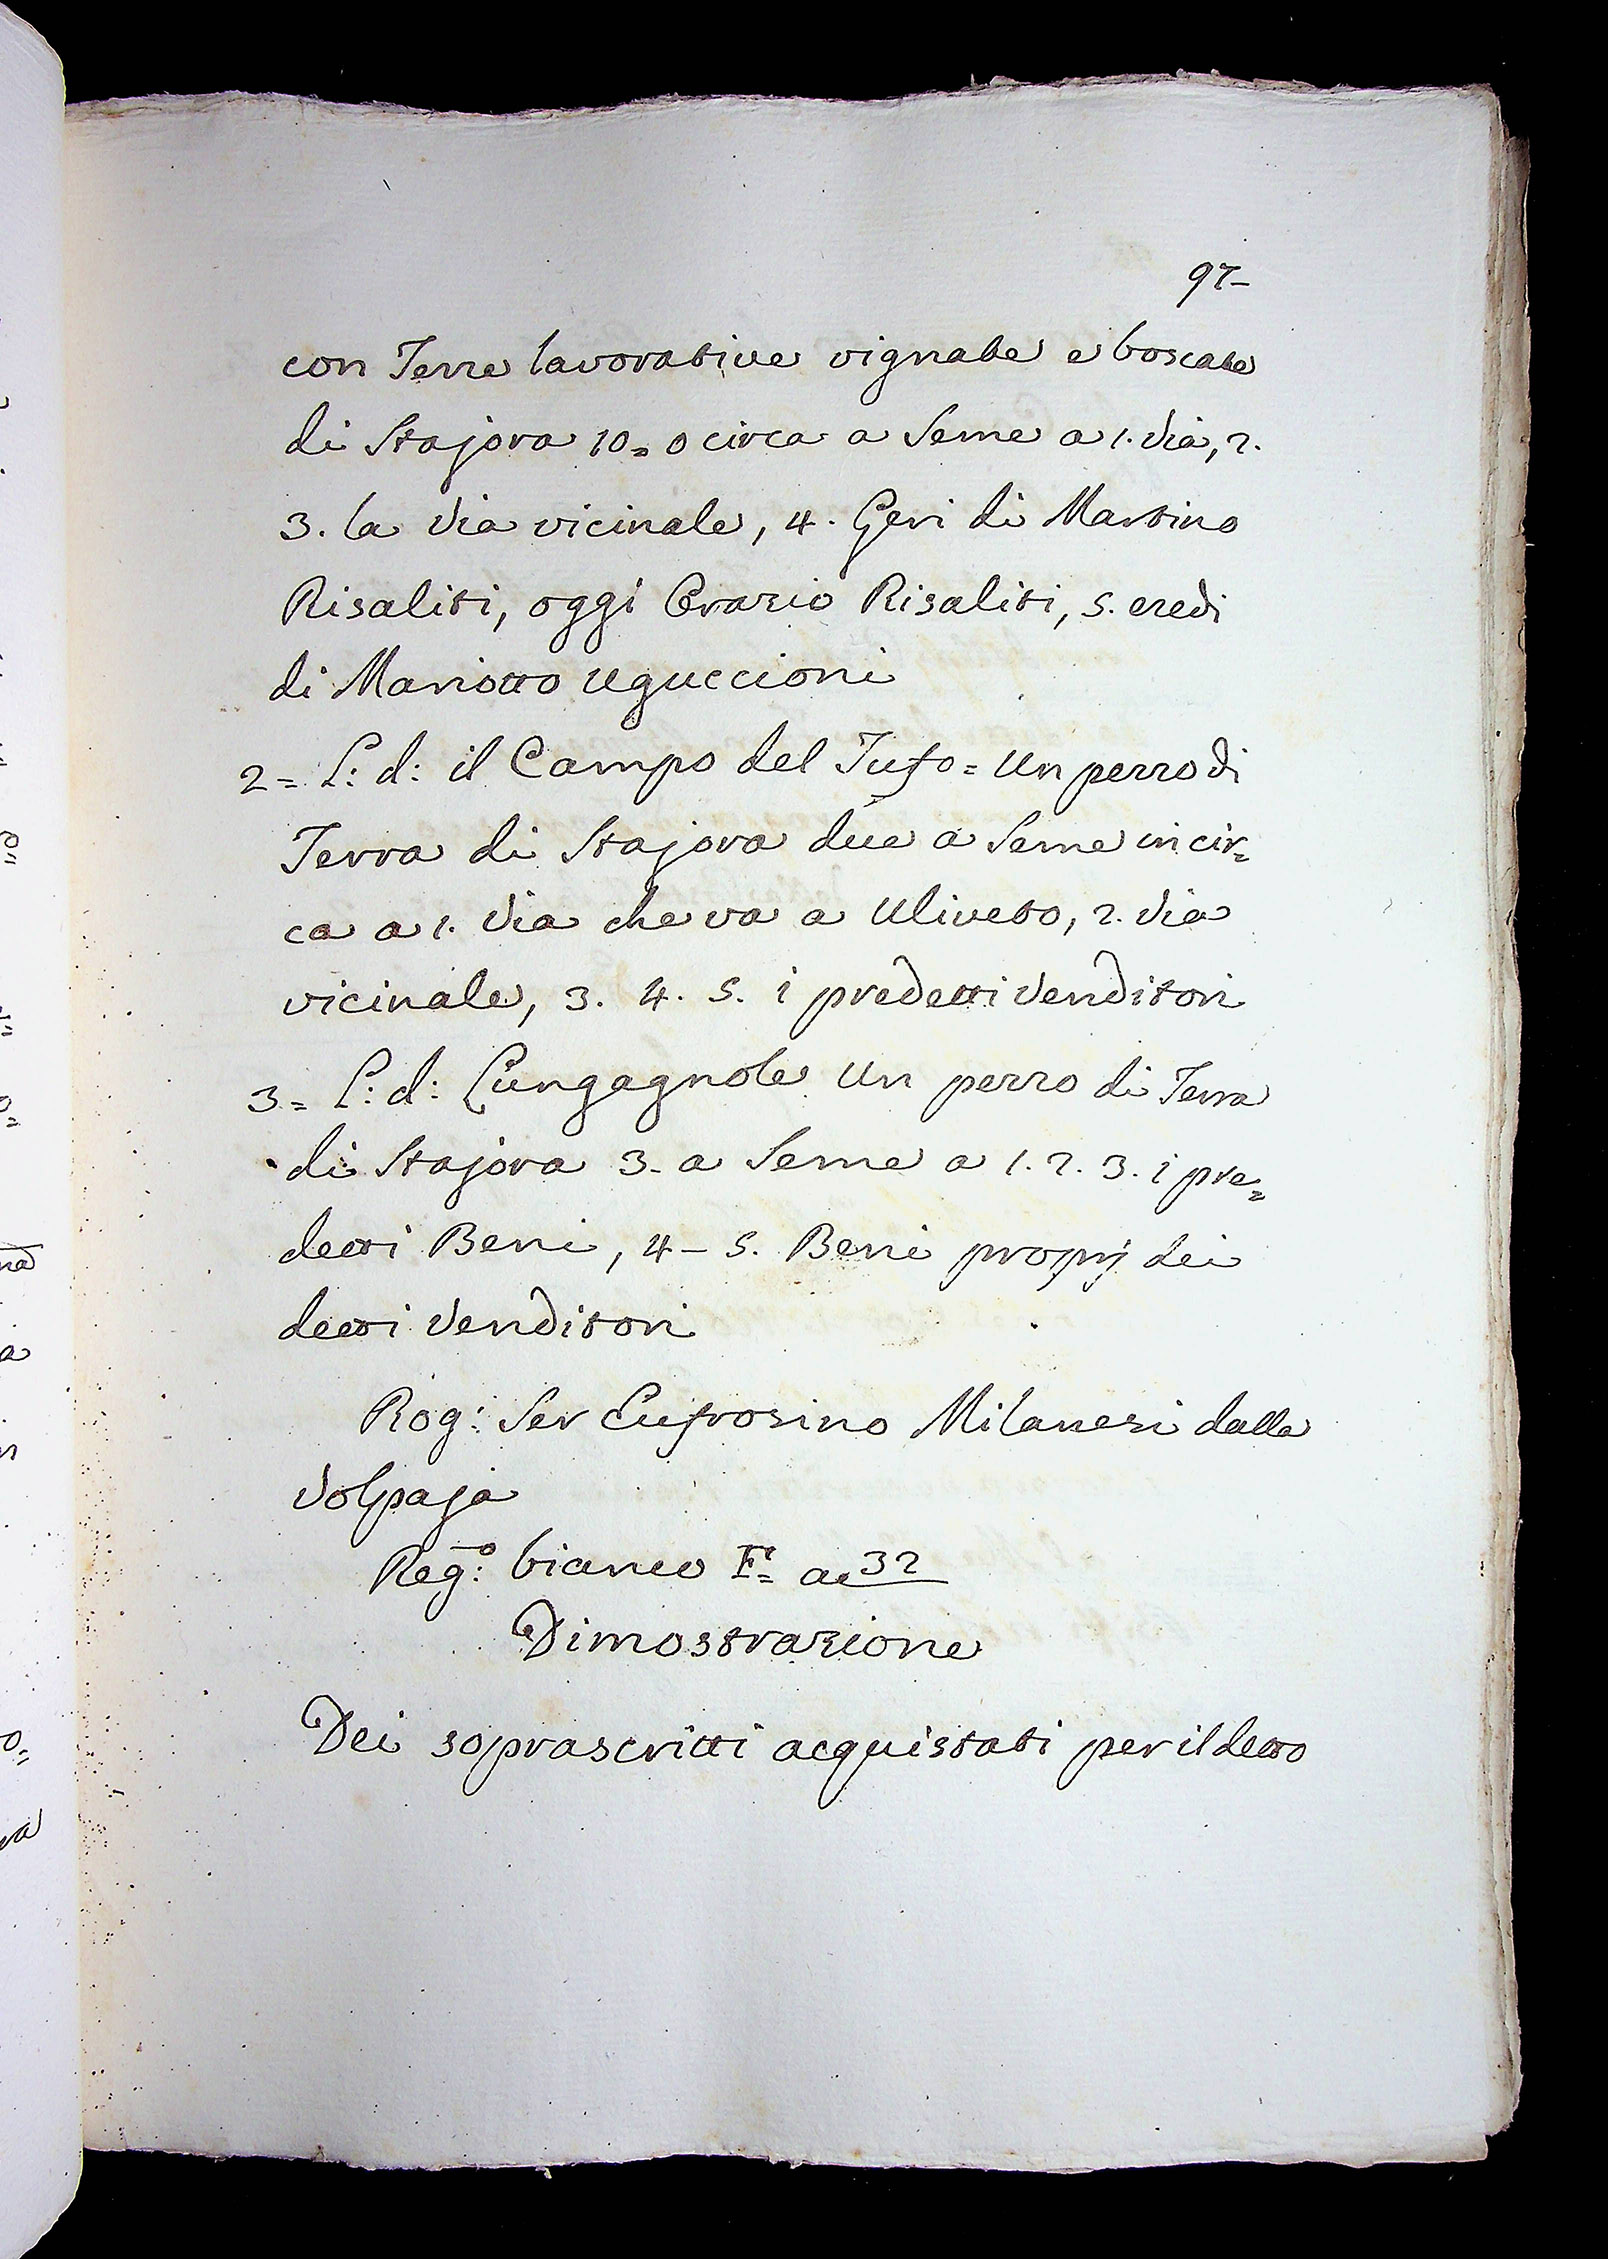 97-
con Terre lavorative vignate e boscate
di Stajora 10= o circa a Seme a 1. Via, 2.
3. la Via vicinale, 4. Geri di Martino
Risaliti, oggi Orazio Risaliti, 5. eredi
di Mariotto Uguccioni
2= L: d: il Campo del Tufo= Un pezzo di
Terra di Stajora due a Seme in cir=
ca a 1. Via che va a Uliveto, 2. Via
vicinale, 3. 4. 5. i predetti Venditori
3= L: d: Lungagnole Un pezzo di Terra
di Stajora 3. a Seme a 1. 2. 3. i pre=
detti Beni, 4- 5. Beni proprij dei
detti Venditori
Rog: Ser Eufrosino Milanesi dalla
Volpaja
Reg:o bianco F= ac 32
Dimostrazione
Dei soprascritti acquistati per il detto